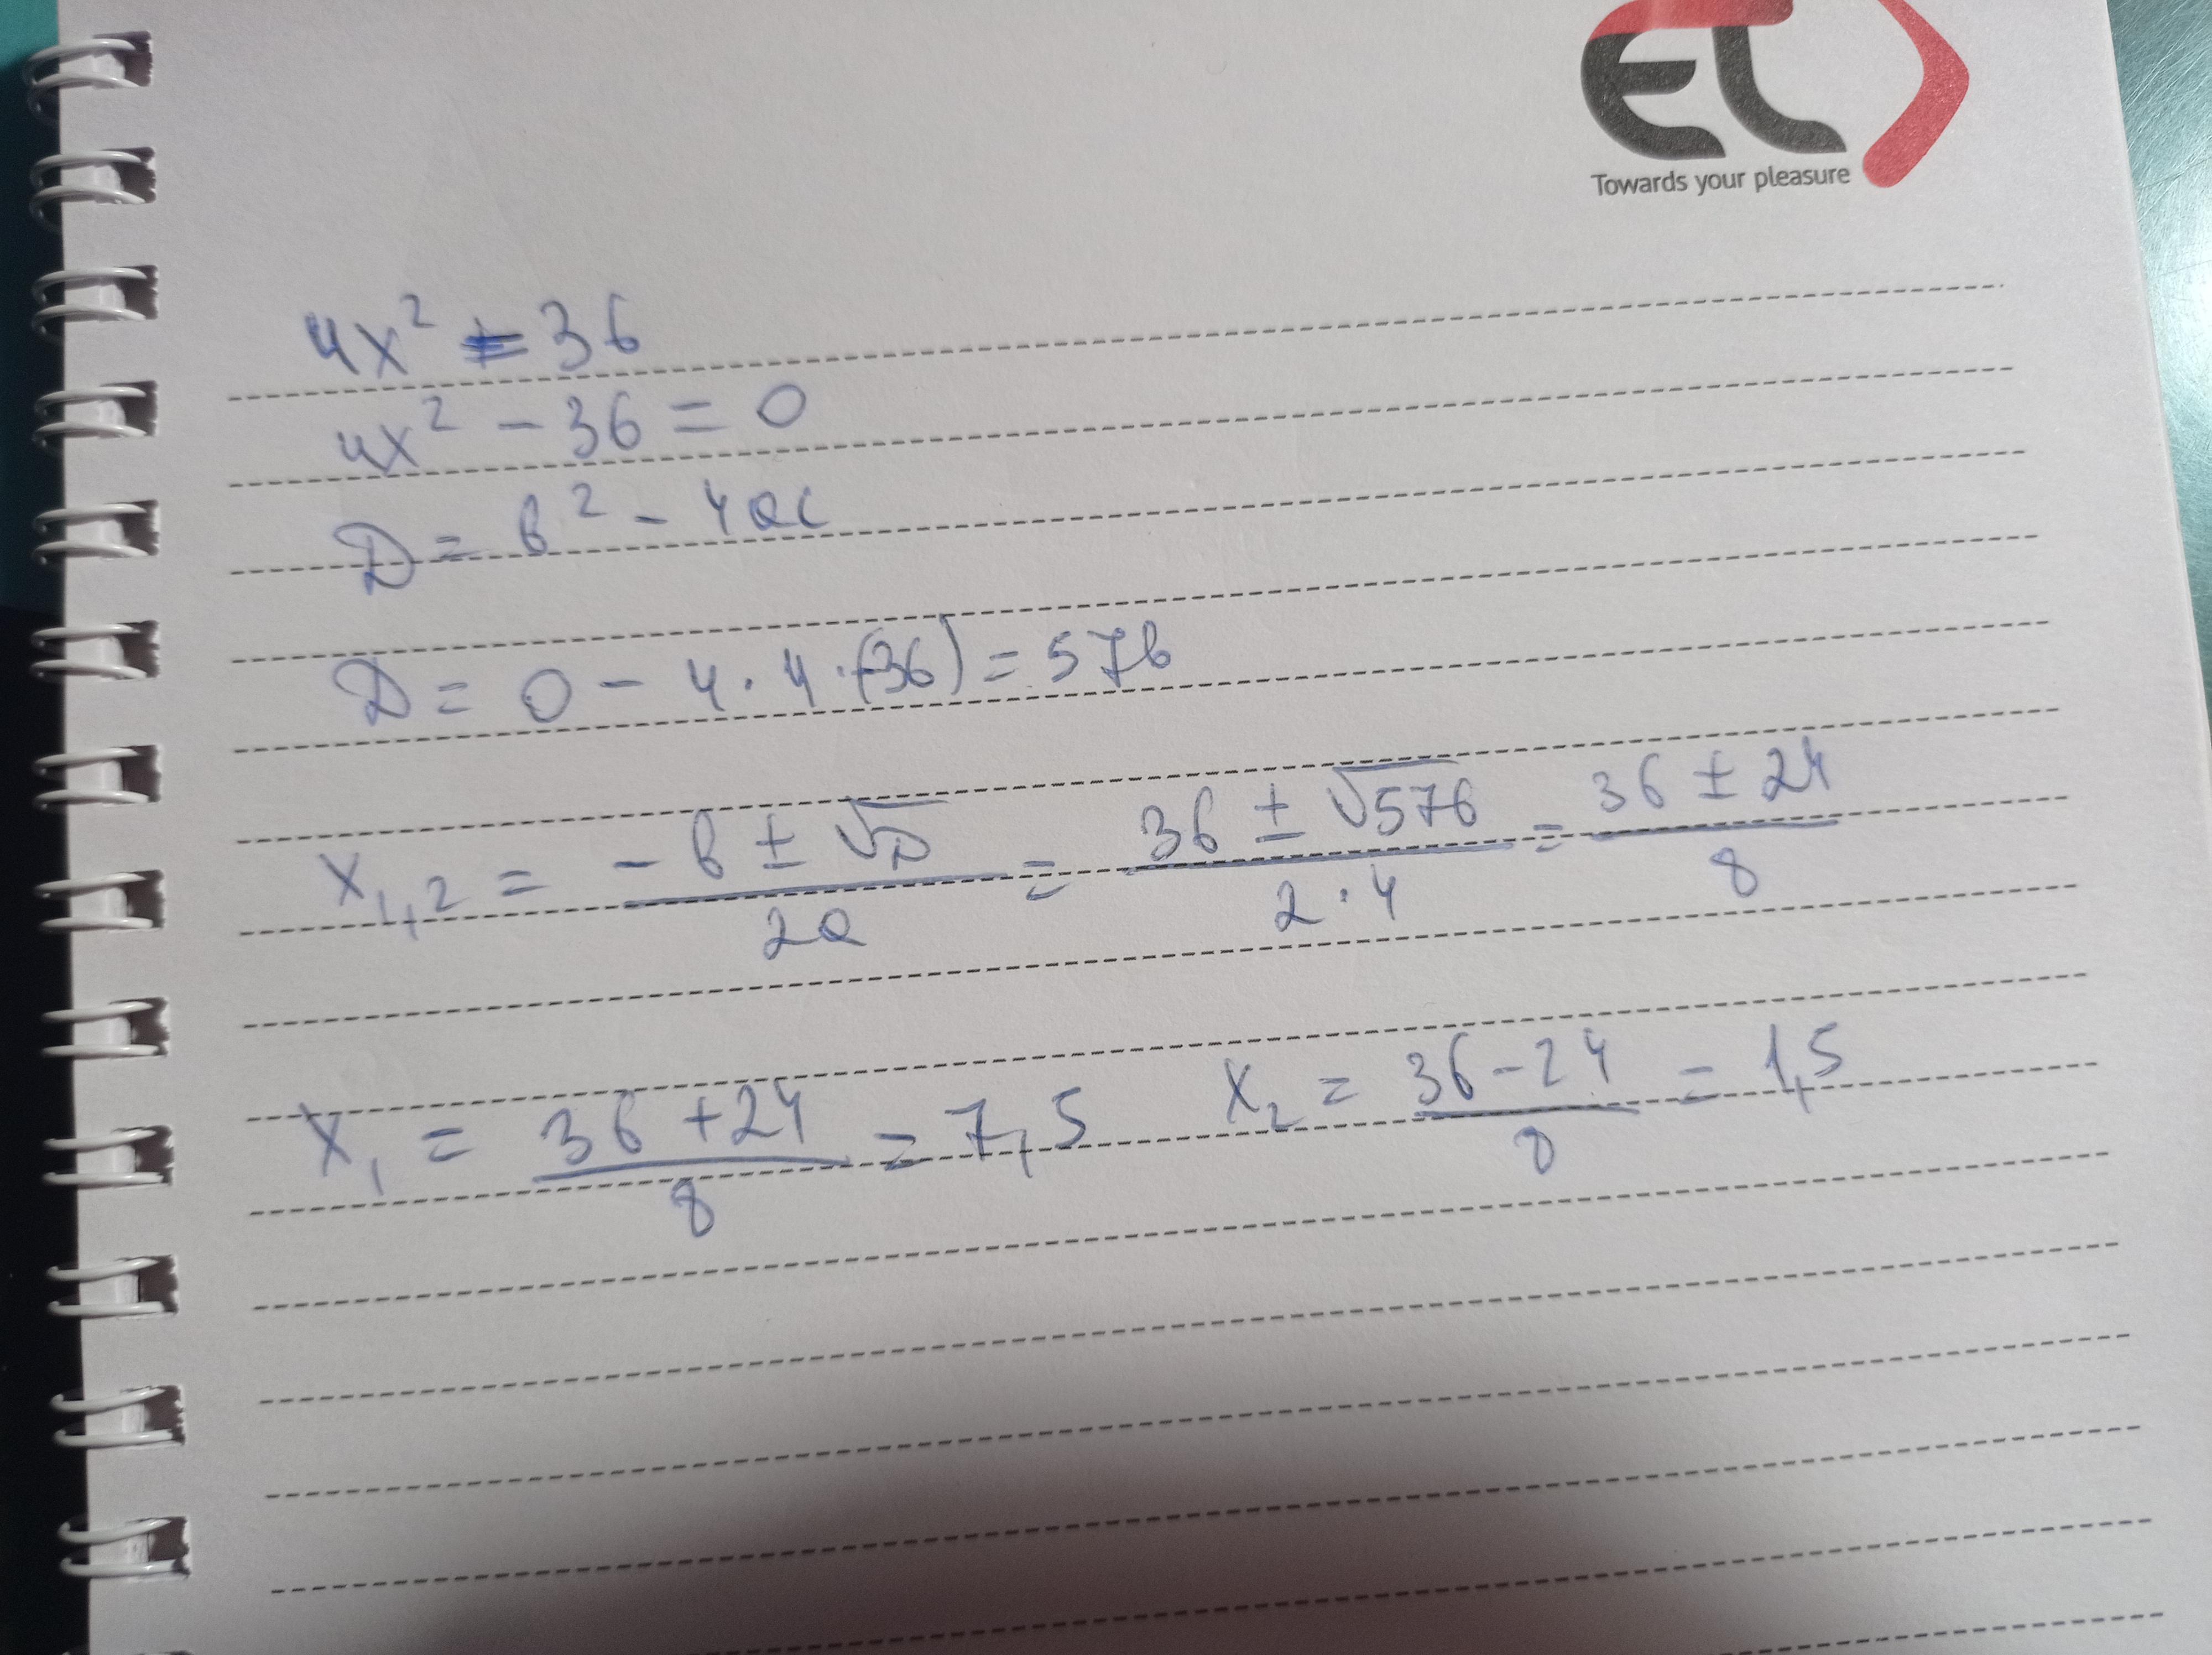 EL
Towards your pleasure
4x² = 36
4x² - 36 = 0
D = b² - 4ac
D = 0 - 4 · 4 · (-36) = 576
x₁,₂ = (-b ± √D)/(2a) = (36 ± √576)/(2 · 4) = (36 ± 24)/8
x₁ = (36 + 24)/8 = 7,5 x₂ = (36 - 24)/8 = 1,5